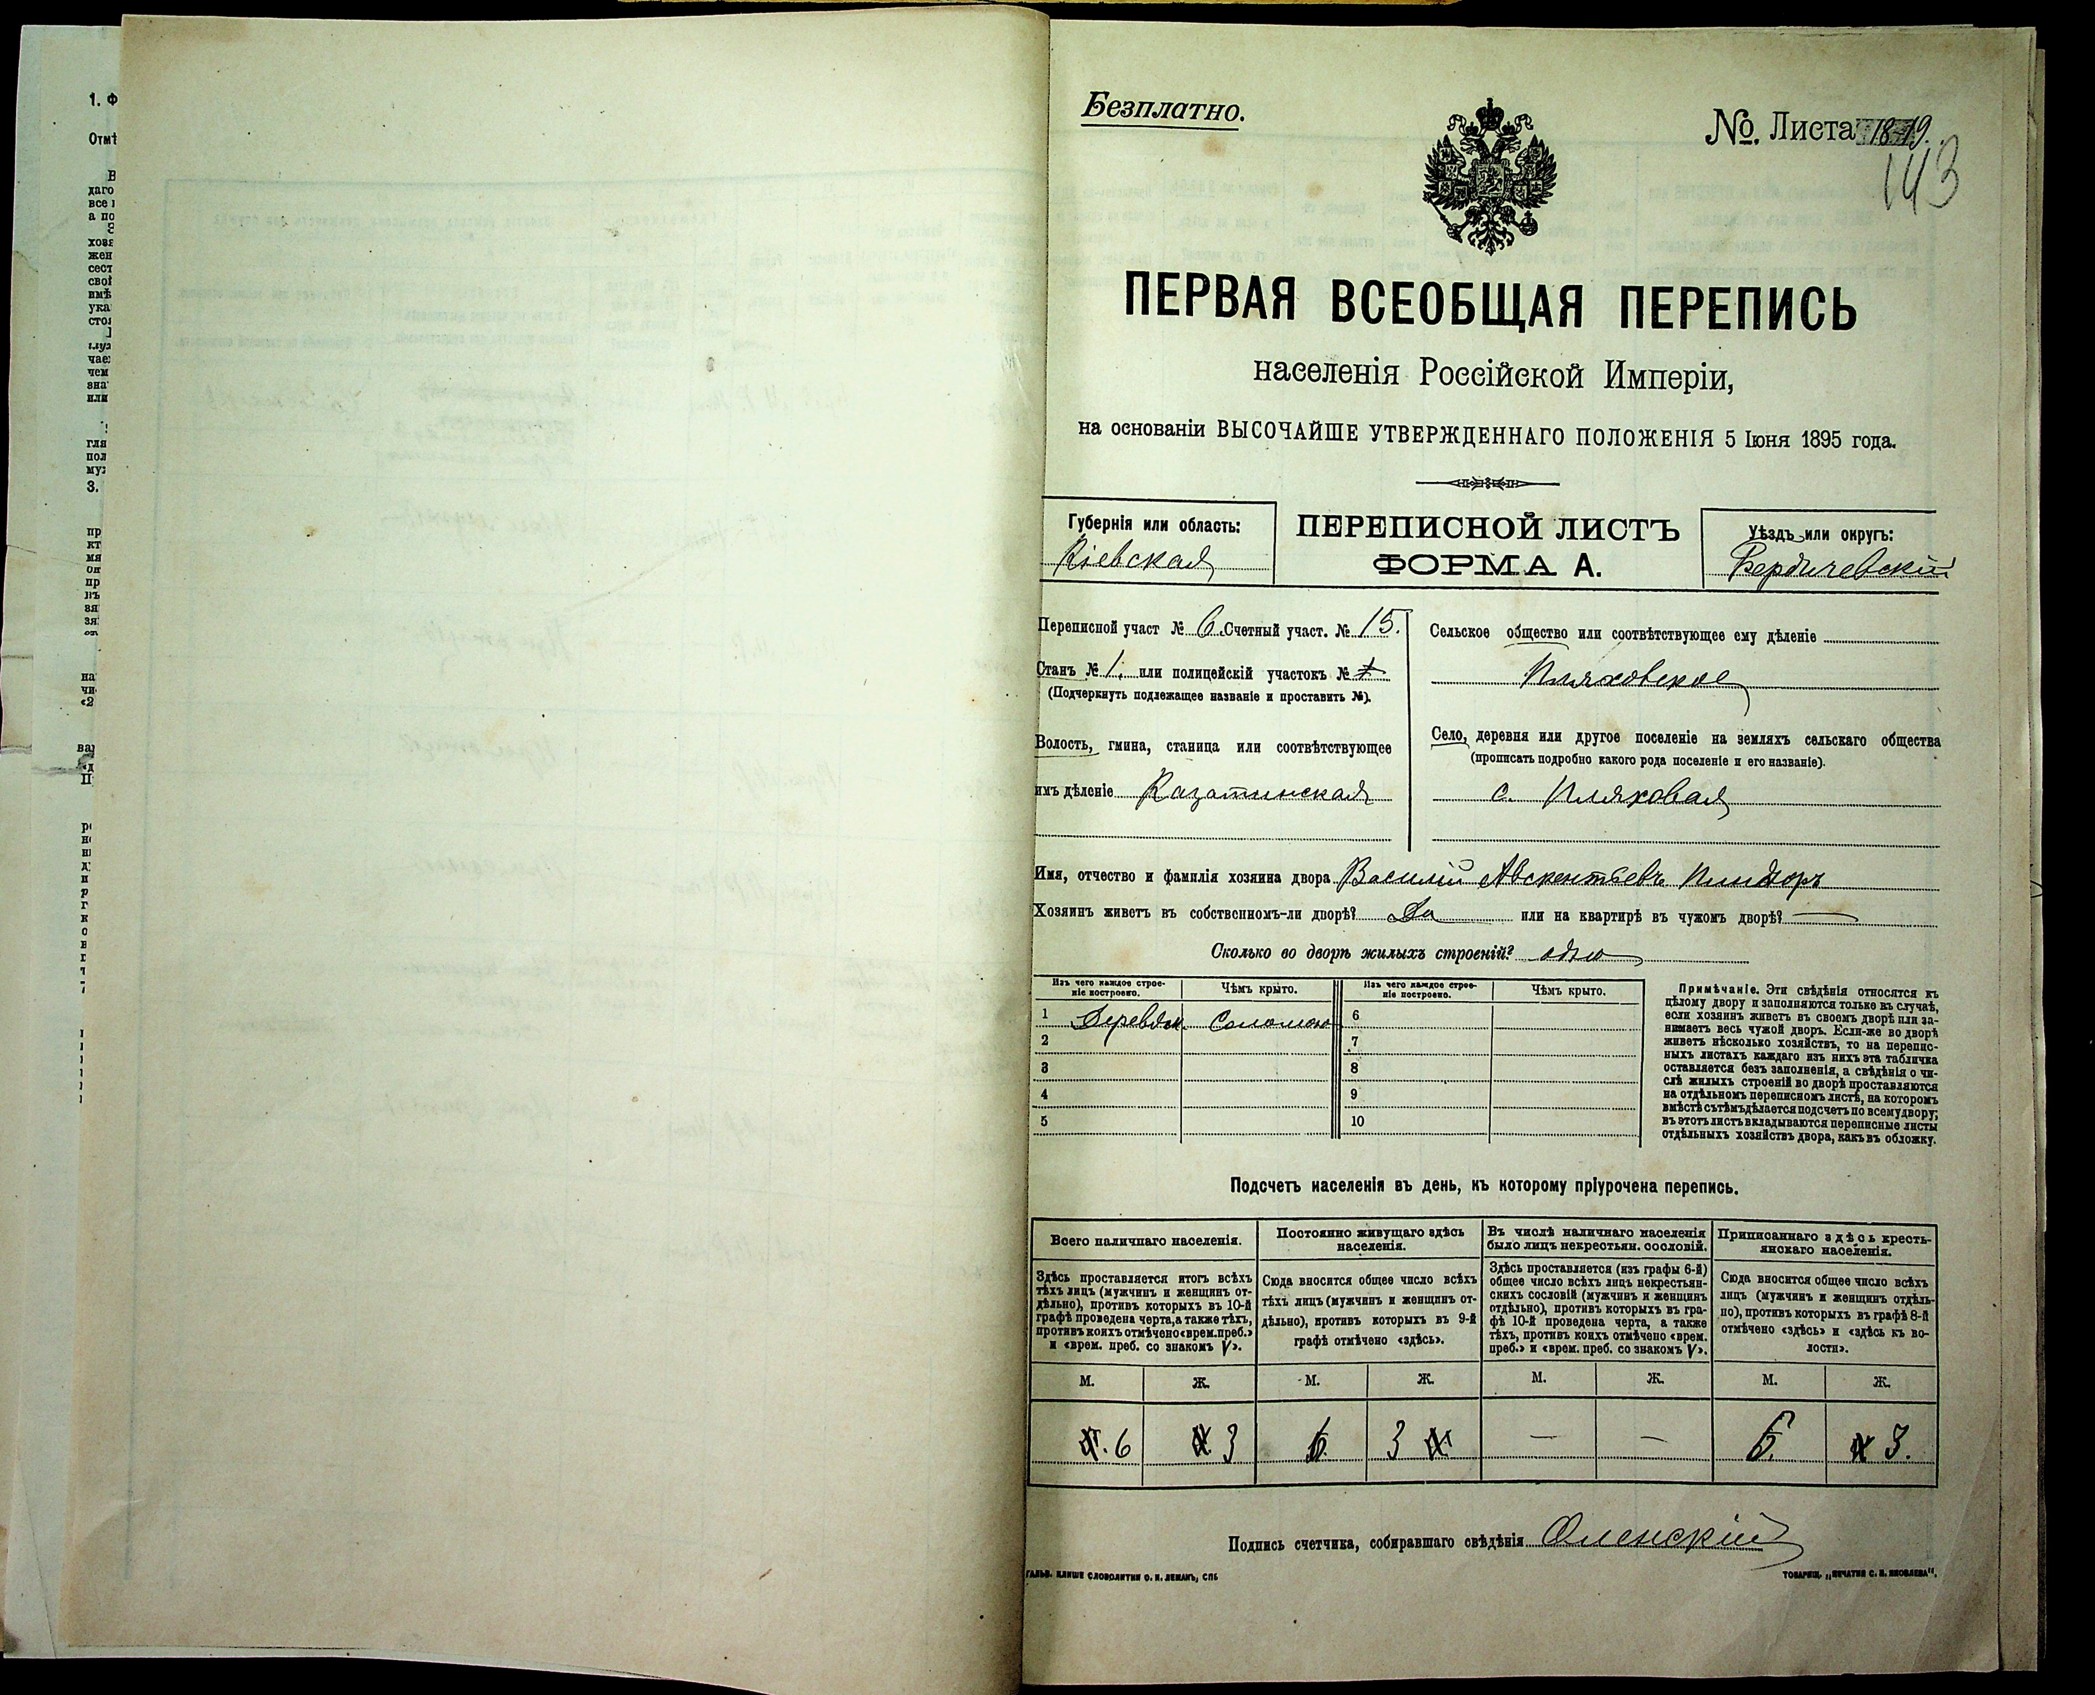 Безплатно.
№ Листа 18 19.
143
ПЕРВАЯ ВСЕОБЩАЯ ПЕРЕПИСЬ
населенія Россійской Имперіи,
на основаніи ВЫСОЧАЙШЕ УТВЕРЖДЕННАГО ПОЛОЖЕНІЯ 5 Іюня 1895 года.
Губернія или область:
Кіевская
ПЕРЕПИСНОЙ ЛИСТЪ
ФОРМА А.
Уѣздъ или округъ:
Бердичевскій
Переписной участ № 6. Счетный участ. № 15.
Станъ № 1. или полицейскій участокъ №
(Подчеркнуть подлежащее названіе и проставить №).
Волость, гмина, станица или соотвѣтствующее
имъ дѣленіе Казатинская
Сельское общество или соотвѣтствующее ему дѣленіе
Пляховское
Село, деревня или другое поселеніе на земляхъ сельскаго общества
(прописать подробно какого рода поселеніе и его названіе).
с. Пляховая
Имя, отчество и фамилія хозяина двора Василій Авксентьевъ
Хозяинъ живетъ въ собственномъ-ли дворѣ? Да или на квартирѣ въ чужомъ дворѣ? —
Сколько во дворѣ жилыхъ строеній? одно
Изъ чего каждое строе-
ніе построено.
Чѣмъ крыто.
Изъ чего каждое строе-
ніе построено.
Чѣмъ крыто.
1 Деревян. Соломою 6
2 7
3 8
4 9
5 10
Примѣчаніе. Эти свѣдѣнія относятся къ
цѣлому двору и заполняются только въ случаѣ,
если хозяинъ живетъ въ своемъ дворѣ или за-
нимаетъ весь чужой дворъ. Если-же во дворѣ
живетъ нѣсколько хозяйствъ, то на перепис-
ныхъ листахъ каждаго изъ нихъ эта табличка
оставляется безъ заполненія, а свѣдѣнія о чи-
слѣ жилыхъ строеній во дворѣ проставляются
на отдѣльномъ переписномъ листѣ, на которомъ
вмѣстѣ съ тѣмъ дѣлается подсчетъ по всему двору;
въ этотъ листъ вкладываются переписные листы
отдѣльныхъ хозяйствъ двора, какъ въ обложку.
Подсчетъ населенія въ день, къ которому пріурочена перепись.
Всего наличнаго населенія.
Постоянно живущаго здѣсь
населенія.
Въ числѣ наличнаго населенія
было лицъ некрестьян. сословій.
Приписаннаго здѣсь кресть-
янскаго населенія.
Здѣсь проставляется итогъ всѣхъ
тѣхъ лицъ (мужчинъ и женщинъ от-
дѣльно), противъ которыхъ въ 10-й
графѣ проведена черта, а также тѣхъ,
противъ коихъ отмѣчено «врем. преб.»
и «врем. преб. со знакомъ V».
Сюда вносится общее число всѣхъ
тѣхъ лицъ (мужчинъ и женщинъ от-
дѣльно), противъ которыхъ въ 9-й
графѣ отмѣчено «здѣсь».
Здѣсь проставляется (изъ графы 6-й)
общее число всѣхъ лицъ некрестьян-
скихъ сословій (мужчинъ и женщинъ
отдѣльно), противъ которыхъ въ гра-
фѣ 10-й проведена черта, а также
тѣхъ, противъ коихъ отмѣчено «врем.
преб.» и «врем. преб. со знакомъ V».
Сюда вносится общее число всѣхъ
лицъ (мужчинъ и женщинъ отдѣль-
но), противъ которыхъ въ графѣ 8-й
отмѣчено «здѣсь» и «здѣсь къ во-
лости».
М. Ж. М. Ж. М. Ж. М. Ж.
6 3 6. 3 — — 6. 3.
Подпись счетчика, собиравшаго свѣдѣнія Оленскій
ГАЛЬВ. КЛИШЕ СЛОВОЛИТНИ О. И. ЛЕМАНЪ, СПБ
ТОВАРИЩ. „ПЕЧАТНЯ С. П. ЯКОВЛЕВА".